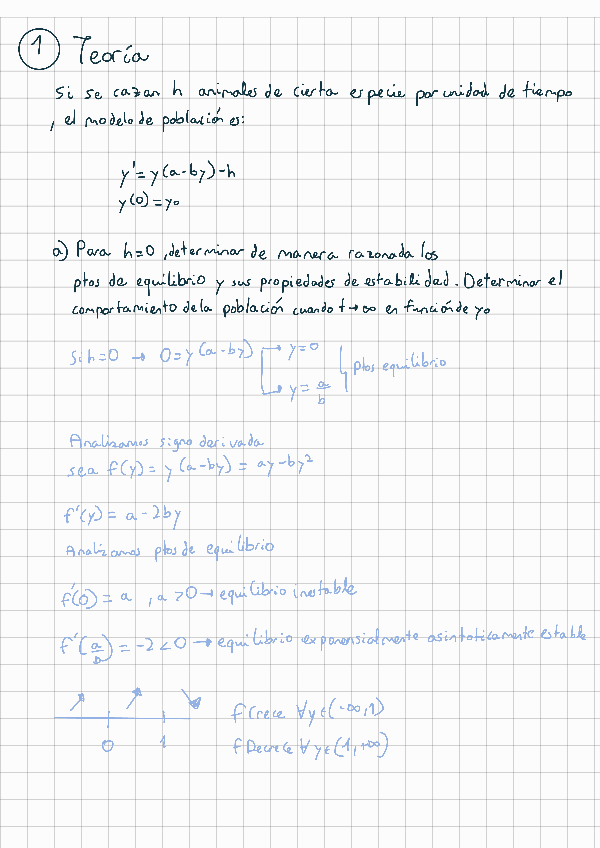 1 Teoría
Si se cazan h animales de cierta especie por unidad de tiempo
, el modelo de población es:
y'= y(a-by)-h
y(0)=y₀
a) Para h=0, determinar de manera razonada los
ptos de equilibrio y sus propiedades de estabilidad. Determinar el
comportamiento de la población cuando t→∞ en función de y₀
Si h=0 → 0=y(a-by) → y=0
→ y= a/b
ptos equilibrio
Analizamos signo derivada
sea f(y) = y(a-by) = ay-by²
f'(y) = a-2by
Analizamos ptos de equilibrio
f'(0) = a , a>0 → equilibrio inestable
f'(a/b) = -2<0 → equilibrio exponensialmente asintoticamente estable
0 1
f Crece ∀y∈(-∞,1)
f Decrece ∀y∈(1,+∞)